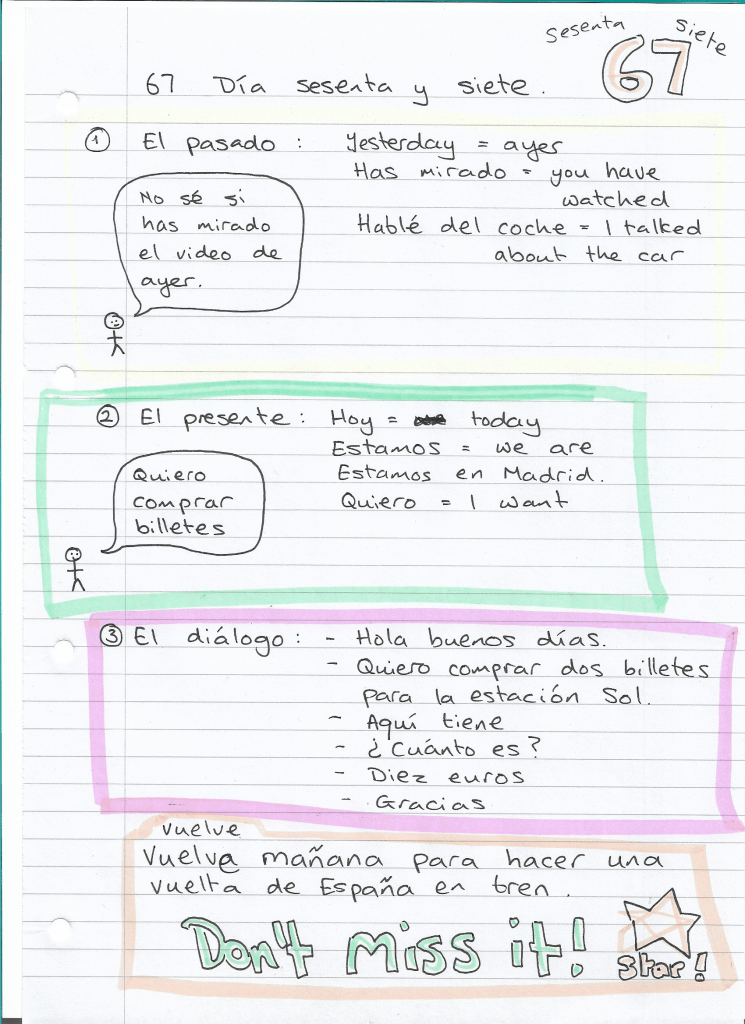 sesenta siete
67
67 Día sesenta y siete.
1 El pasado : Yesterday = ayer
Has mirado = you have
watched
Hablé del coche = I talked
about the car
No sé si
has mirado
el video de
ayer.
2 El presente : Hoy = today
Estamos = we are
Estamos en Madrid.
Quiero = I want
Quiero
comprar
billetes
3 El diálogo : - Hola buenos días.
- Quiero comprar dos billetes
para la estación Sol.
- Aquí tiene
- ¿Cuánto es?
- Diez euros
- Gracias
vuelve
Vuelve mañana para hacer una
vuelta de España en tren.
Don't miss it!
Star!